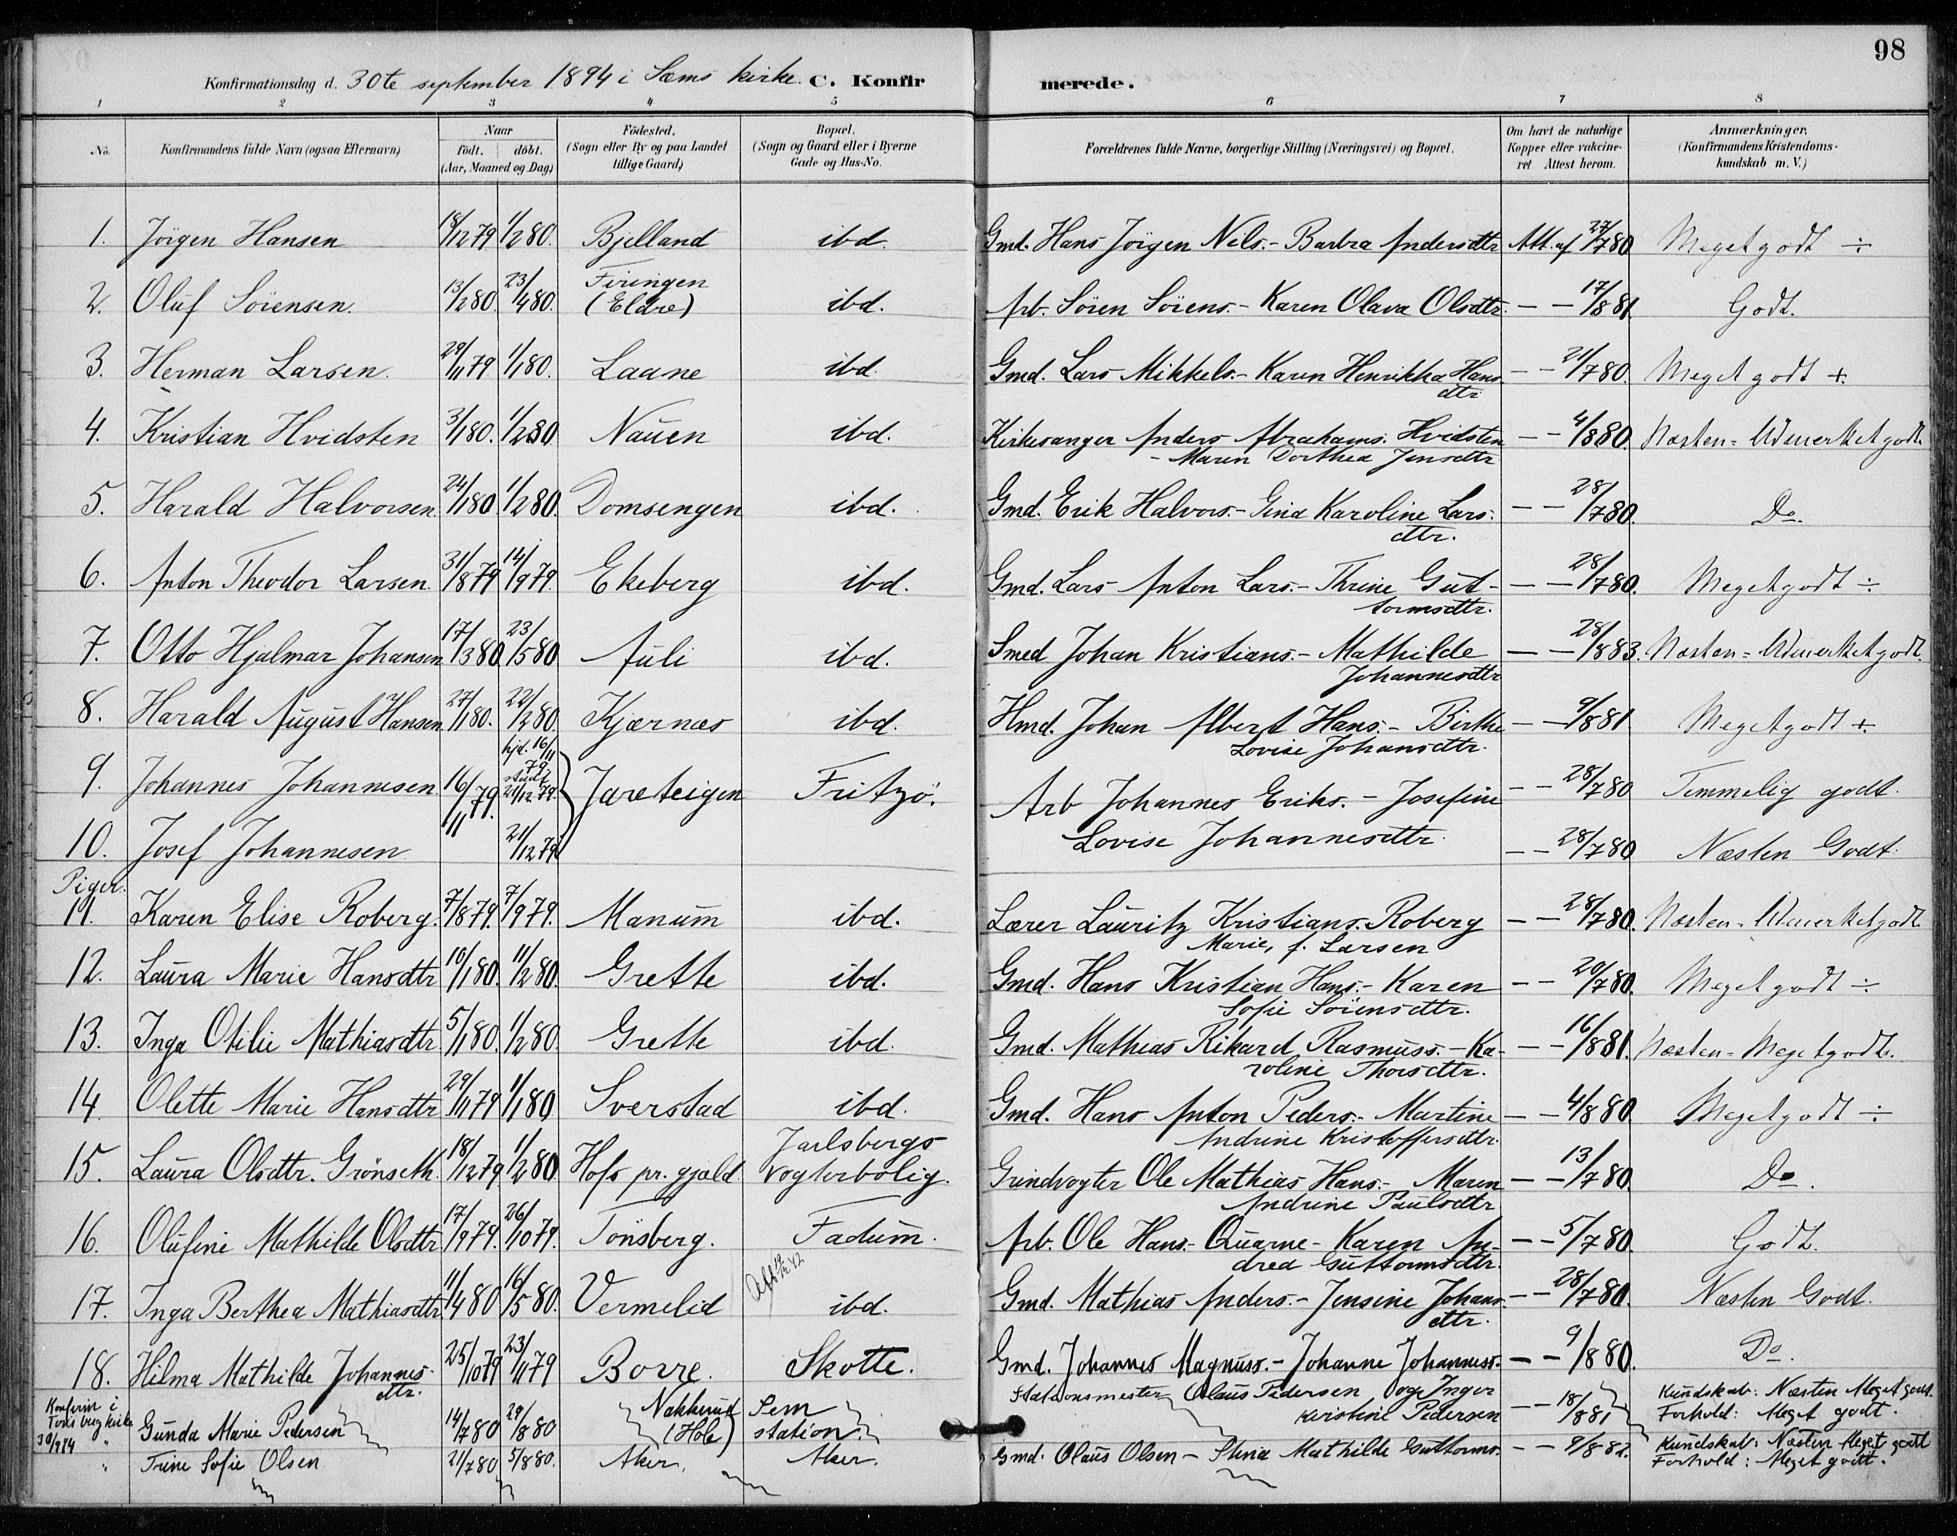 98
Konfirmationsdag d. 30te september 1894 i Sems kirke. C. Konfir merede.
1 2 3 4 5 6 7 8
No. Konfirmandens fulde Navn (ogsaa Efternavn) Naar født. døbt. (Aar, Maaned og Dag) Fødested. (Sogn eller By og paa Landet tillige Gaard) Bopæl. (Sogn og Gaard eller i Byerne Gade og Hus-No. Forældrenes fulde Navne, borgerlige Stilling (Næringsvei) og Bopæl. Om havt de naturlige Kopper eller vakcineret Attest herom. Anmærkninger. (Konfirmandens Kristendomskundskab m. V.)
1. Jörgen Hansen 18/12 79 1/2 80. Bjelland ibd. Gmd. Hans Jörgen Nels.- Barbra Andersdtr Att. af 27/7 80. Meget godt ÷
2. Oluf Sörensen. 13/2 80. 23/4 80. Firingen (Eldre) ibd. Arb. Sören Sörens.- Karen Olava Olsdtr. - - 17/8 81. Godt.
3. Herman Larsen. 29/11 79 1/1 80. Laane ibd. Gmd. Lars Mikkels.- Karen Henrikka Hansdtr - - 21/7 80. Meget godt +.
4. Kristian Hvidsten 3/1 80. 1/2 80 Nauen ibd. Kirkesanger Anders Abrahams. Hvidsten - - 4/8 80. Næsten-Udmerket godt.
- Maren Dorthea Jensdtr
5. Harald Halvorsen. 24/1 80 1/2 80. Domsengen ibd. Gmd. Erik Halvors.- Gina Karoline Larsdtr. - - 28/7 80. Do.
6. Anton Theodor Larsen. 31/8 79 14/9 79. Ekeberg ibd. Gmd. Lars Anton Lars.- Thrine Guttormsdtr. - - 28/7 80. Meget godt ÷
7. Otto Hjalmar Johansen 17/3 80. 23/5 80 Auli ibd. Smed Johan Kristians.- Mathilde Johannesdtr - - 28/8 83. Næsten-Udmerket godt.
8. Harald August Hansen 27/1 80. 22/2 80. Kjærnæs ibd. Hmd. Johan Albert Hans.- Birthe Lovise Johansdtr. - - 9/8 81. Meget godt +.
9. Johannes Johannesen 16/11 79. hjd. 16/11 79 stadf. 21/12 79. Jareteigen Fritzö. Arb Johannes Eriks.- Josefine - - 28/7 80 Temmelig godt.
10. Josef Johannesen 21/12 79 Lovise Johannesdtr. - - 28/7 80 Næsten Godt
Piger.
11. Karen Elise Roberg. 7/8 79. 7/9 79. Manum ibd. Lærer Lauritz Kristians. Roberg - - 28/7 80. Næsten-Udmerket godt
Marie, f. Larsen
12. Laura Marie Hansdtr 10/1 80. 11/2 80. Grette ibd. Gmd. Hans Kristian Hans.- Karen Sofie Sörensdtr. - - 20/7 80. Meget godt ÷
13. Inga Otilie Mathiasdtr 5/1 80. 1/2 80. Grette ibd. Gmd. Mathias Rikard Rasmuss.- Karoline Thorsdtr. - - 16/8 81. Næsten-Meget godt.
14. Olette Marie Hansdtr 29/11 79 1/1 80 Sverstad ibd. Gmd. Hans Anton Peders.- Martine Andrine Kristoffersdtr. - - 4/8 80. Meget godt ÷
15. Laura Olsdtr. Grönseth. 18/12 79 1/2 80. Hofs pr.gjæld Jarlsbergs vogterbolig. Grindvogter Ole Mathias Hans.- Maren Andrine Paulsdtr - - 13/7 80. Do.
16. Olufine Mathilde Olsdtr 17/9 79. 26/10 79. Tönsberg. Fadum. Arb. Ole Hans.- Quarne- Karen Andrea Guttormsdtr. - - 5/7 80. Godt.
17. Inga Berthea Mathiasdtr 11/4 80 16/5 80. Vermelid ibd. Gmd. Mathias Anders.- Jensine Johansdtr. - - 28/7 80. Næsten Godt.
18. Hilma Mathilde Johannesdtr. 25/10 79 23/11 79 Borre. Skotte. Gmd. Johannes Magnuss.- Johanne Johanness. - - 9/8 80. Do.
Konfirm i Tønsberg kirke 30/9 94 Gunda Marie Pedersen 14/7 80 29/8 80 Nakkerud (Hole) Sem station. Stationsmester Olaus Pedersen og Inger Kristine Pedersen - - 18/8 81 Kundskab: Næsten Meget godt. Forhold: Meget godt.
" Trine Sofie Olsen 21/7 80 5/8 80. Aker. Aker. Gmd. Olaus Olsen - Stina Mathilde Guttorms. - - 9/8 82. Kundskab: Næsten Meget godt Forhold: Meget godt.